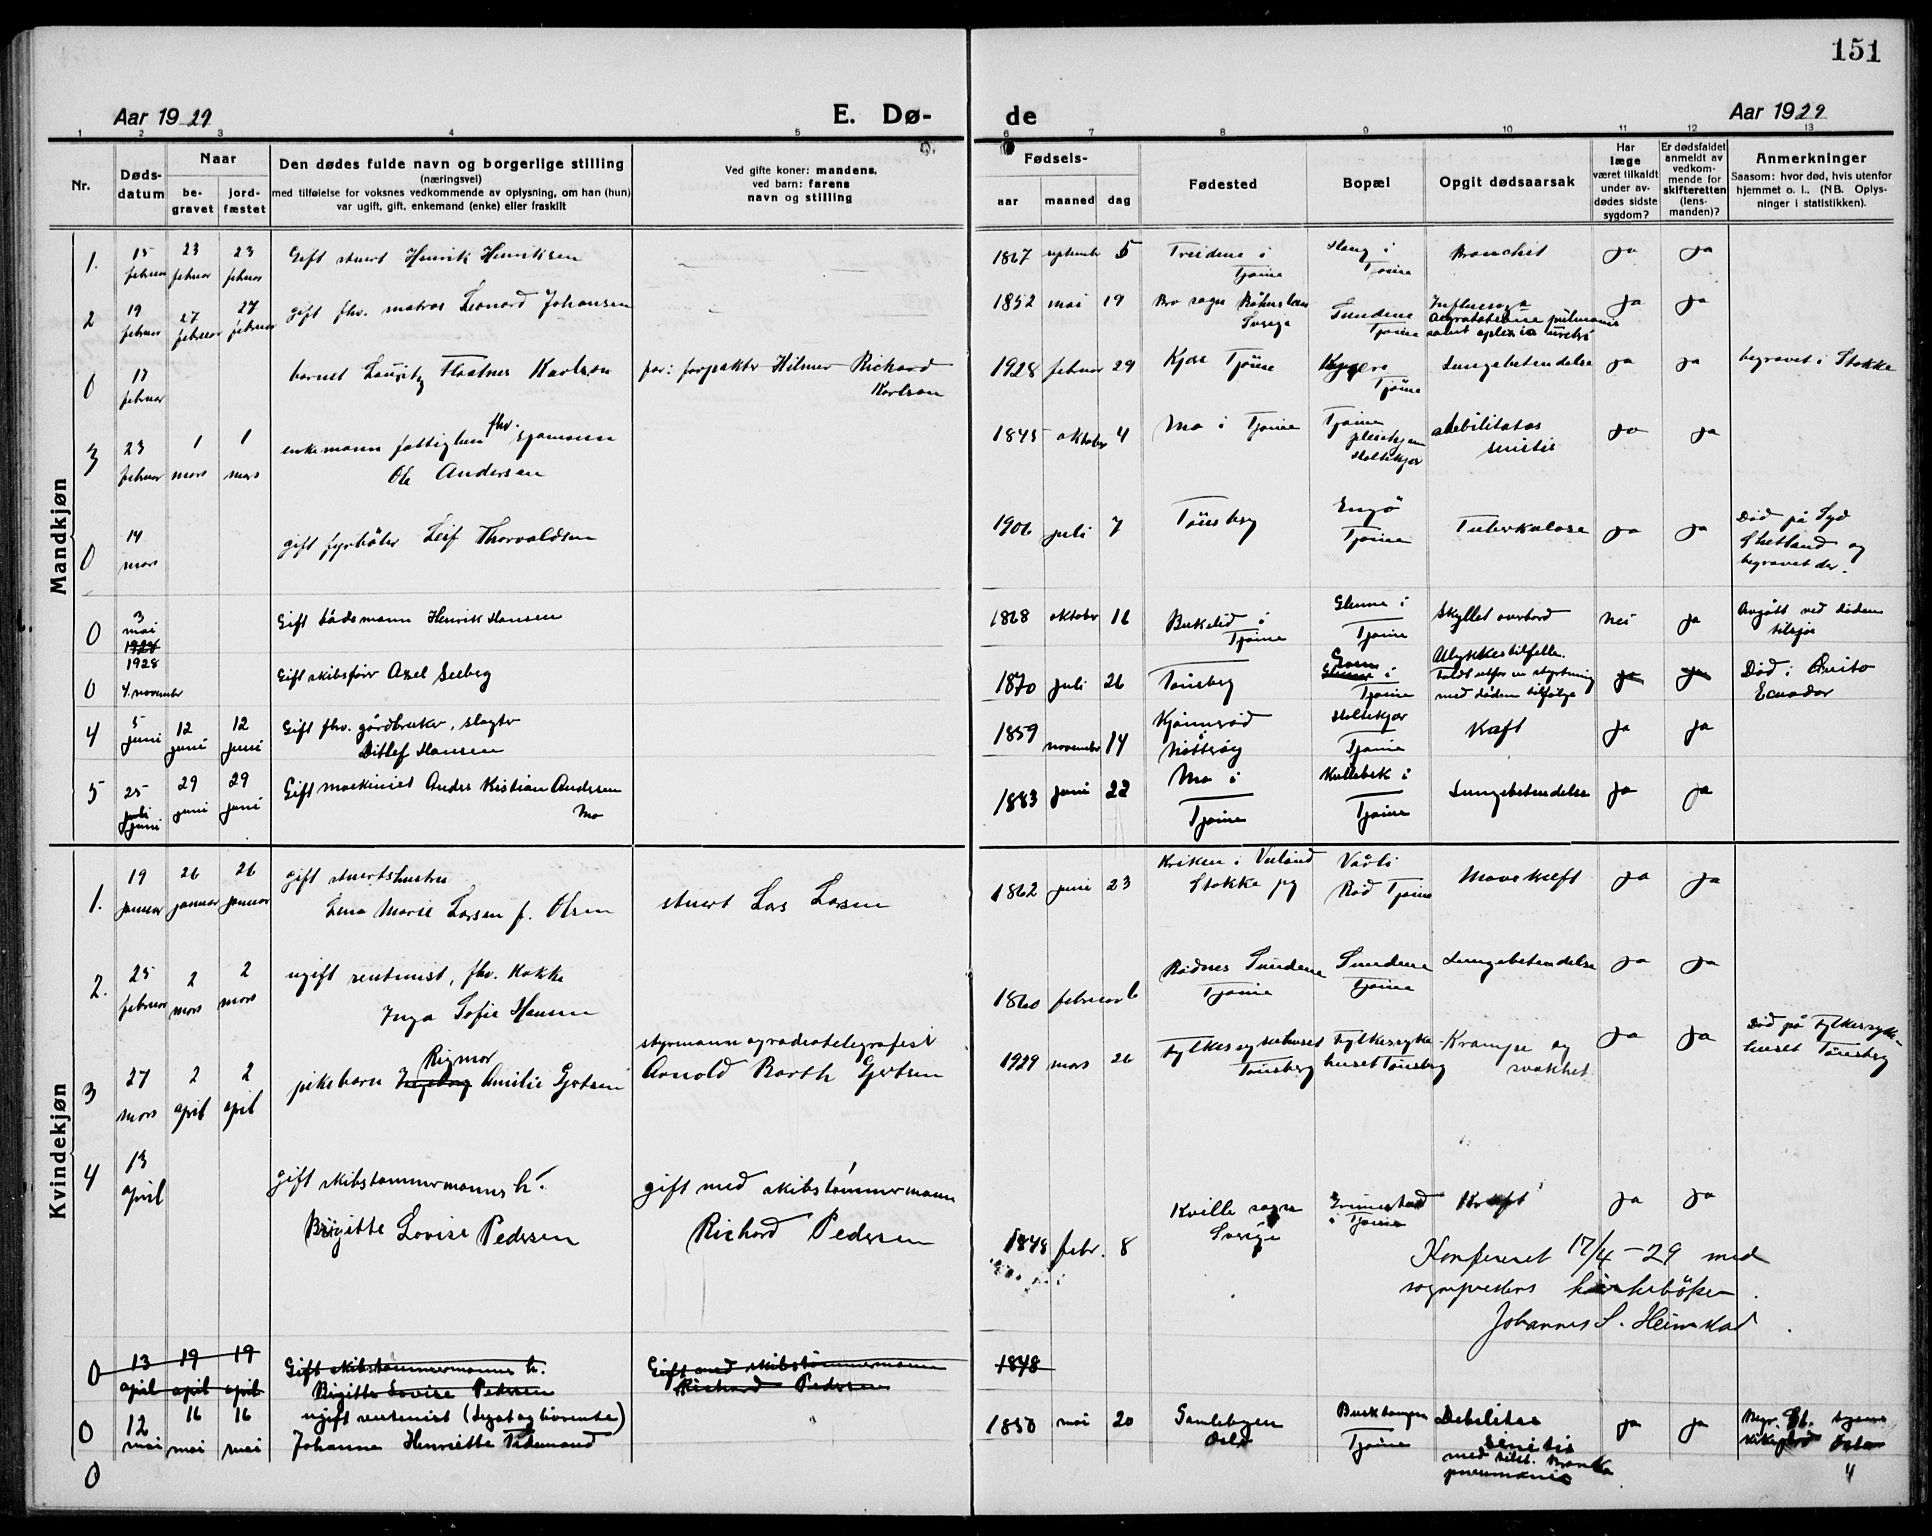 151
Aar 1929
E. Dø-
de
Aar 1929
1 2 3 4 5 6 7 8 9 10 11 12 13
Nr.
Døds-
datum
Naar
be-
gravet
jord-
fæstet
Den dødes fulde navn og borgerlige stilling
(næringsvei)
med tilføielse for voksnes vedkommende av oplysning, om han (hun)
var ugift, gift, enkemand (enke) eller fraskilt
Ved gifte koner: mandens,
ved barn: farens
navn og stilling
Fødsels-
aar maaned dag
Fødested
Bopæl
Opgit dødsaarsak
Har
læge
været tilkaldt
under av-
dødes sidste
sygdom?
Er dødsfaldet
anmeldt av
vedkom-
mende for
skifteretten
(lens-
manden)?
Anmerkninger
Saasom: hvor død, hvis utenfor
hjemmet o. l., (NB. Oplys-
ninger i statistikken).
Mandkjøn
1. 15 februar 23 februar 23 februar
Gift stuert Henrik Henriksen
1867 september 5 Treidene i Tjøme
Haug i Tjøme
Bronchit ja ja
2 19 februar 27 februar 27 februar
gift fhv. matros Leonard Johansen
1852 mai 19 Bro sogn Båhuslen Sverige
Sundene Tjøme
Influensa
ja ja
0 17 februar
barnet Lauritz Flaatnes Karlson
far: forpakter Hilmer Richard Karlson
1928 februar 29 Kjøse Tjøme
Tjøme
Lungebetendelse ja ja
begravet i Stokke
3 23 februar 1 mars 1 mars
enkemann fattiglem fhv. sjømann
Ole Andersen
1845 oktober 4 Mo i Tjøme
Tjøme pleiehjem Holtekjær
debilitatas senilis
ja ja
0 14 mars
gift fyrbøter Leif Thorvaldsen
1906 juli 7 Tønsberg
Engø Tjøme
Tuberkulose ja ja
Død på Syd
Shetland og
begravet der.
0 3 mai 1929 1928
Gift bådsmann Henrik Hansen
1868 oktober 16 Bukelid i Tjøme
Glenne i Tjøme
Skyllet overbord nei ja
Avgått ved døden
tilsjøs
0 4. november
Gift skibsfører Axel Seeberg
1870 juli 26 Tønsberg
Grime Glenne i Tjøme
Ulykkestilfelle.
Faldt utfor en styrtning
med døden tilfølge
ja ja
Død i Quito
Ecuador
4 5 juni 12 juni 12 juni
Gift fhv. gårdbruker, slagter
Ditlef Hansen
1859 november 14 Kjønnerød Nøtterøy
Holtekjær Tjøme
Kræft ja ja
5 25 juli juni 29 juni 29 juni
Gift maskinist Anders Kristian Andersen
Mo
1883 juni 22 Mo i Tjøme
Kullebek i Tjøme
Lungebetendelse ja ja
Kvindekjøn
1. 19 januar 26 januar 26 januar
gift stuertshustru
Lena Marie Larsen f. Olsen
stuert Lars Larsen
1862 juni 23 Kriken i Vealand Stokke pg
Vårli Rød Tjøme
Mavekreft ja ja
2. 25 februar 2 mars 2 mars
ugift rentenist, fhv. kokke
Inga Sofie Hansen
1860 februar 6 Rødnes Sundene Tjøme
Sundene Tjøme
Lungebetendelse ja ja
3 27 mars 2 april 2 april
Rigmor
pikebarn Ingeborg Amilie Gjertsen
styrmann og radiotelegrafist
Arnold Barth Gjertsen
1929 mars 26 Fylkessykehuset Tønsberg
Fylkessykehuset Tønsberg
Krampe og svakhet
ja ja
Død på Fylkessyke-
huset Tønsberg
4 13 april
gift skibstømmermanns h.
Birgitte Lovise Pedersen
gift med skibstømmermann
Richard Pedersen
1848 febr. 8 Kville sogn Sverige
Grimestad i Tjøme
Kræft ja ja
Konfereret 17/4-29 med
sogneprestens kirkebøker.
Johannes S. Heimstad
0 13 april 19 april 19 april
Gift skibstømmermanns h.
Birgitte Lovise Pedersen
Gift med skibstømmermann
Richard Pedersen
1848
0 12 mai 16 mai 16 mai
ugift rentenist (Legat og livrente)
Johanne Henriette Tidemand
1850 mai 20 Gamlebyen Oslo
Tjøme
Debilitas
senilis
med tilst. Bronko
pneumonia
ja ja
0
4